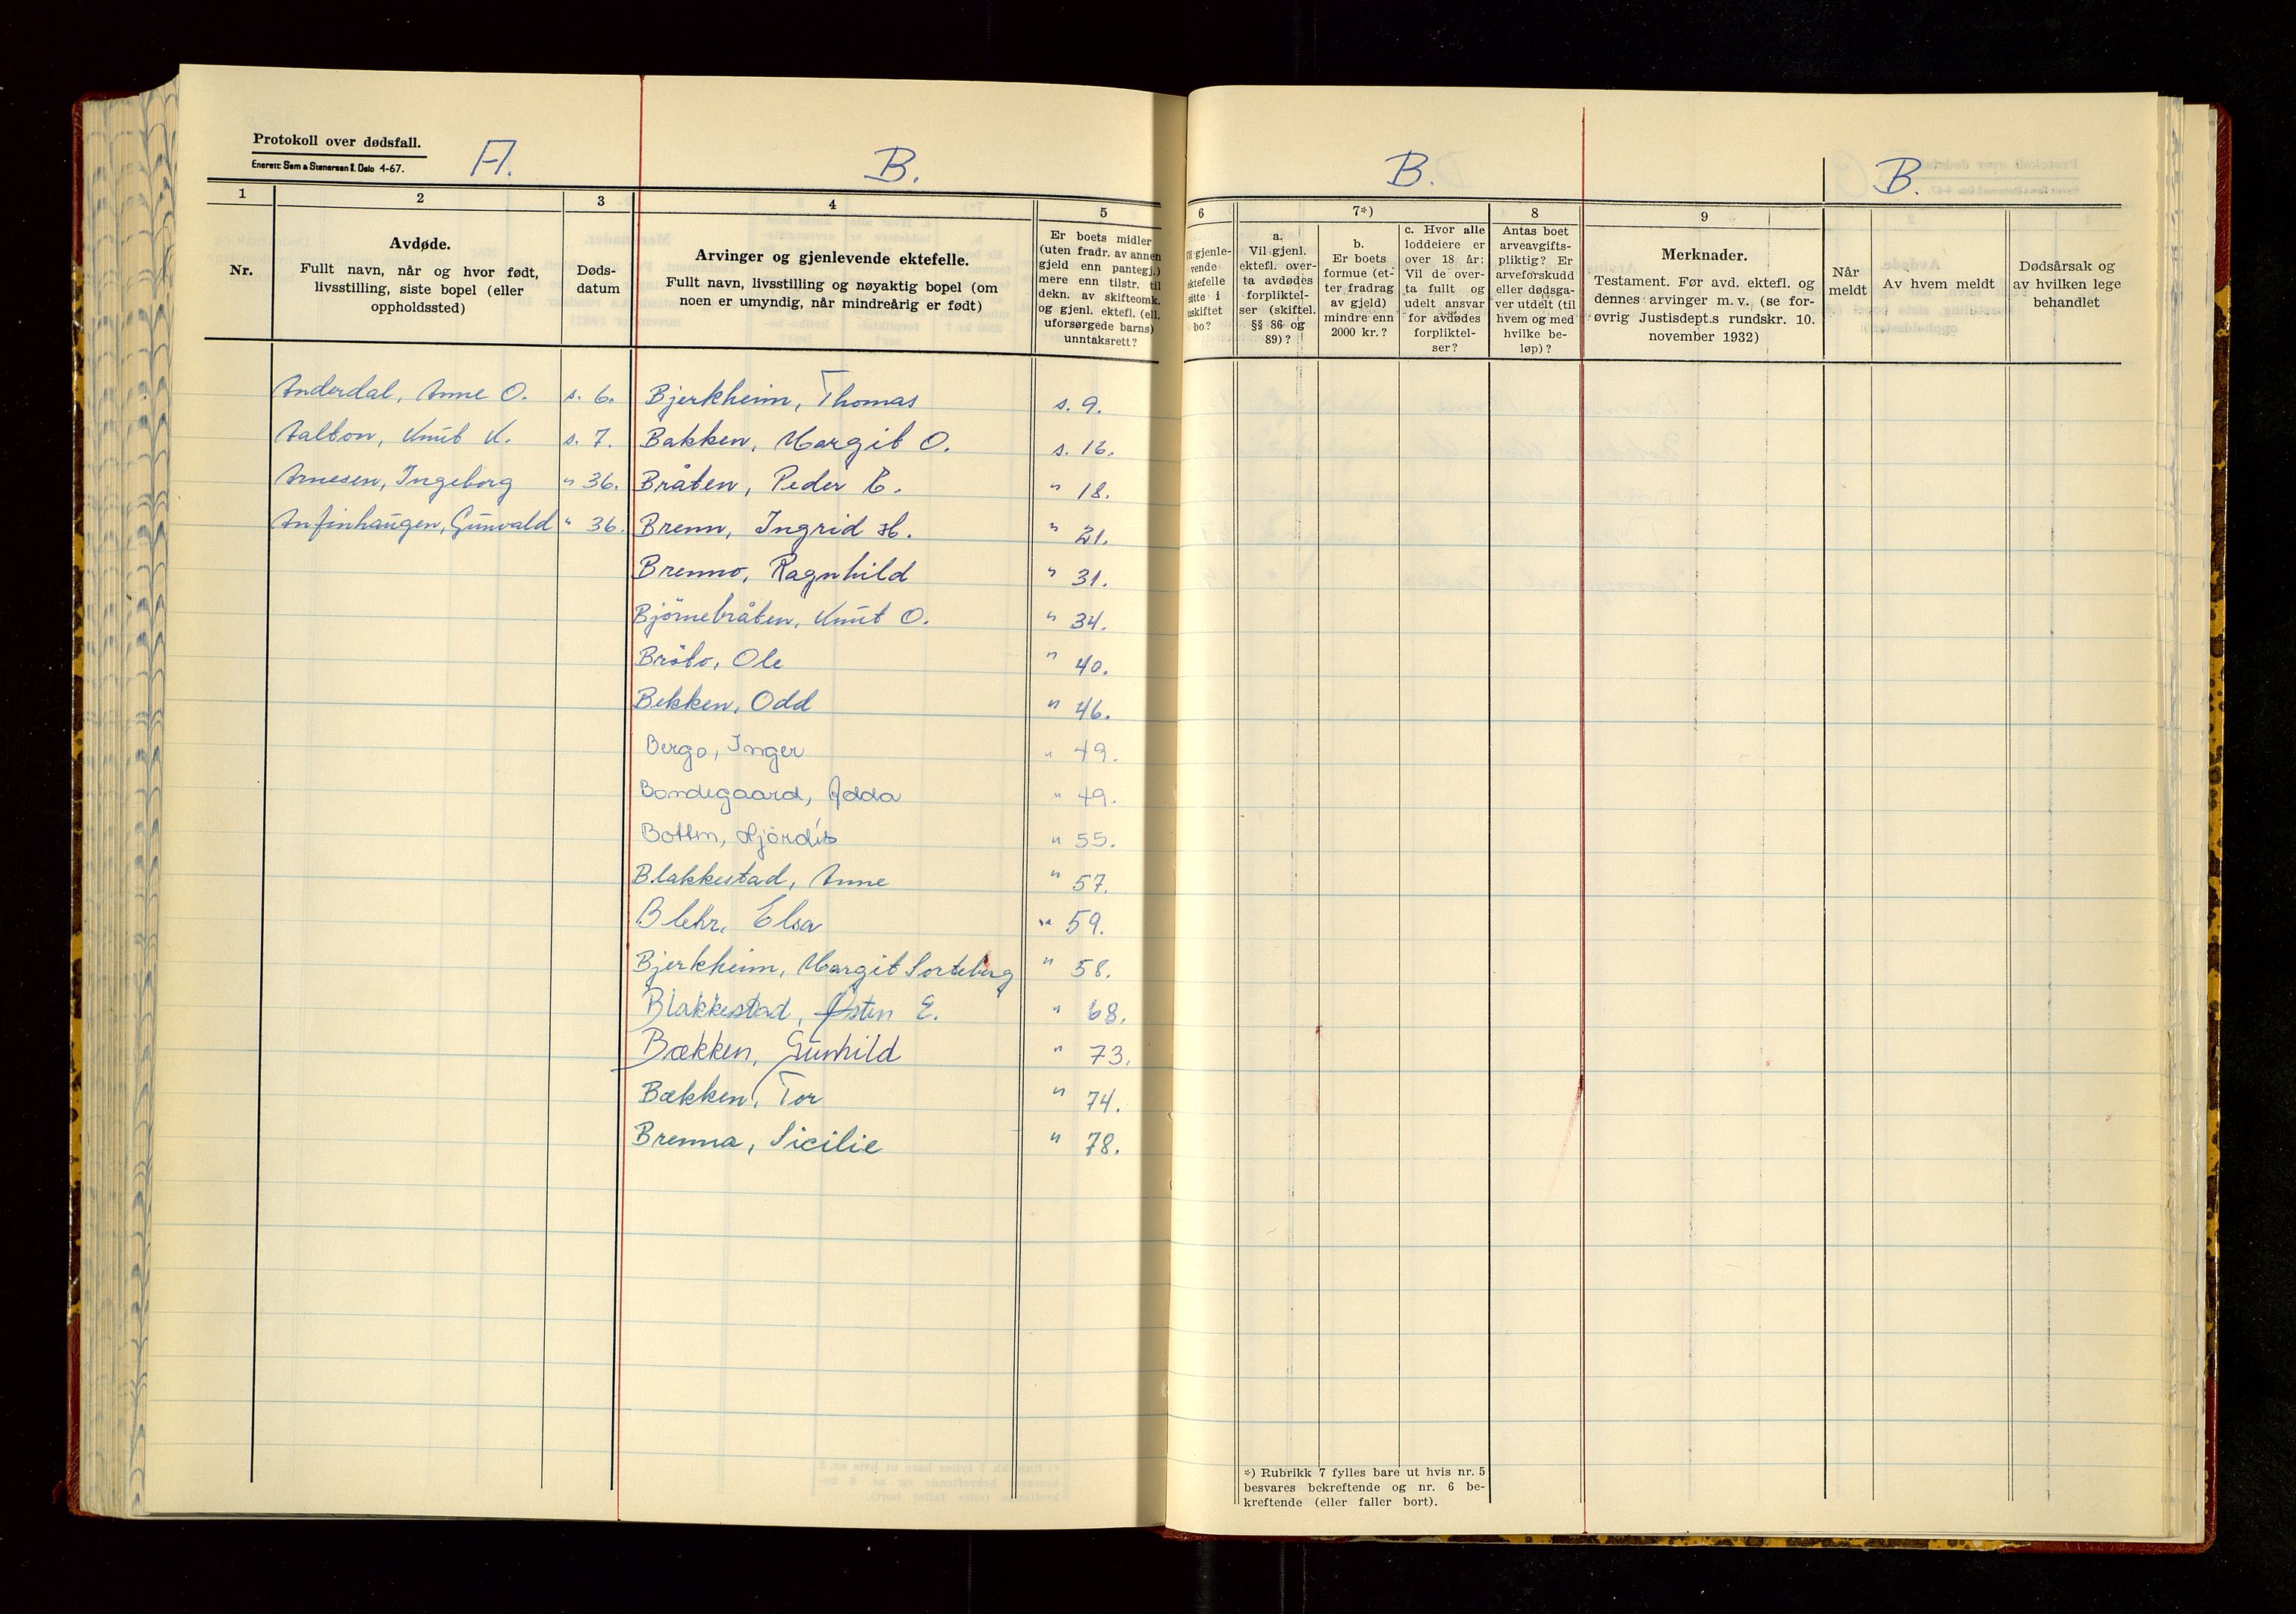 Protokoll over dødsfall.
Enerett Sem & Stenersen A/S. Oslo 4-67.
A.
B.
B.
B.
1
2
3
4
5
6
7*)
8
9
Nr.
Avdøde.
Fullt navn, når og hvor født,
livsstilling, siste bopel (eller
oppholdssted)
Døds-
datum
Arvinger og gjenlevende ektefelle.
Fullt navn, livsstilling og nøyaktig bopel (om
noen er umyndig, når mindreårig er født)
Er boets midler
(uten fradr. av annen
gjeld enn pantegj.)
mere enn tilstr. til
dekn. av skifteomk.
og gjenl. ektefl. (ell.
uforsørgede barns)
unntaksrett?
gjenle-
vende
ektefelle
sitte i
uskiftet
bo?
a.
Vil gjenl.
ektefl. over-
ta avdødes
forpliktel-
ser (skiftel.
§§ 86 og
89)?
b.
Er boets
formue (et-
ter fradrag
av gjeld)
mindre enn
2000 kr.?
c. Hvor alle
loddeiere er
over 18 år:
Vil de over-
ta fullt og
udelt ansvar
for avdødes
forpliktel-
ser?
Antas boet
arveavgifts-
pliktig? Er
arveforskudd
eller dødsga-
ver utdelt (til
hvem og med
hvilke be-
løp)?
Merknader.
Testament. Før avd. ektefl. og
dennes arvinger m. v. (se for-
øvrig Justisdept.s rundskr. 10.
november 1932)
Når
meldt
Av hvem meldt
Dødsårsak og
av hvilken lege
behandlet
Anderdal, Anne O. s. 6. Bjerkheim, Thomas s. 9.
Aalton, Knut K. s. 7. Bakken, Margit O. s. 16.
Arnesen, Ingeborg " 36. Bråten, Peder E. " 18.
Anfinhaugen, Gunvald " 36. Brenn, Ingrid H. " 21.
Brenno, Ragnhild " 31.
Björnebråten, Knut O. " 34.
Bröto, Ole " 40.
Bekken, Odd " 46.
Bergo, Inger " 49.
Bondegaard, Adda " 49.
Botten, Hjördis " 55.
Blakkestad, Anne " 57.
Blehr, Elsa " 59.
Bjerkheim, Margit Sorteberg " 58.
Blakkestad, Østen E. " 68.
Bækken, Gunhild " 73.
Bækken, Tor " 74.
Brenna, Sicilie " 78.
*) Rubrikk 7 fylles bare ut hvis nr. 5
besvares bekreftende og nr. 6 be-
kreftende (eller faller bort).